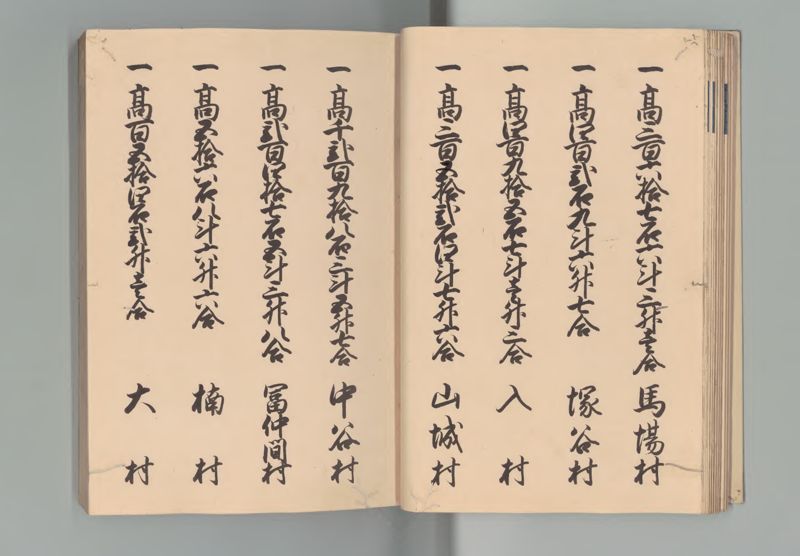 一 高三百六拾七石六斗三升壱合 馬場村
一 高四百弐石九斗六升七合 塚谷村
一 高四百九拾五石七斗壱升三合 入村
一 高三百五拾弐石四斗七升六合 山城村
一 高千弐百九拾八石三斗五升七合 中谷村
一 高弐百四拾七石五斗三升八合 冨仲間村
一 高五拾六石八斗六升六合 楠村
一 高百五拾四石弐升壱合 大村